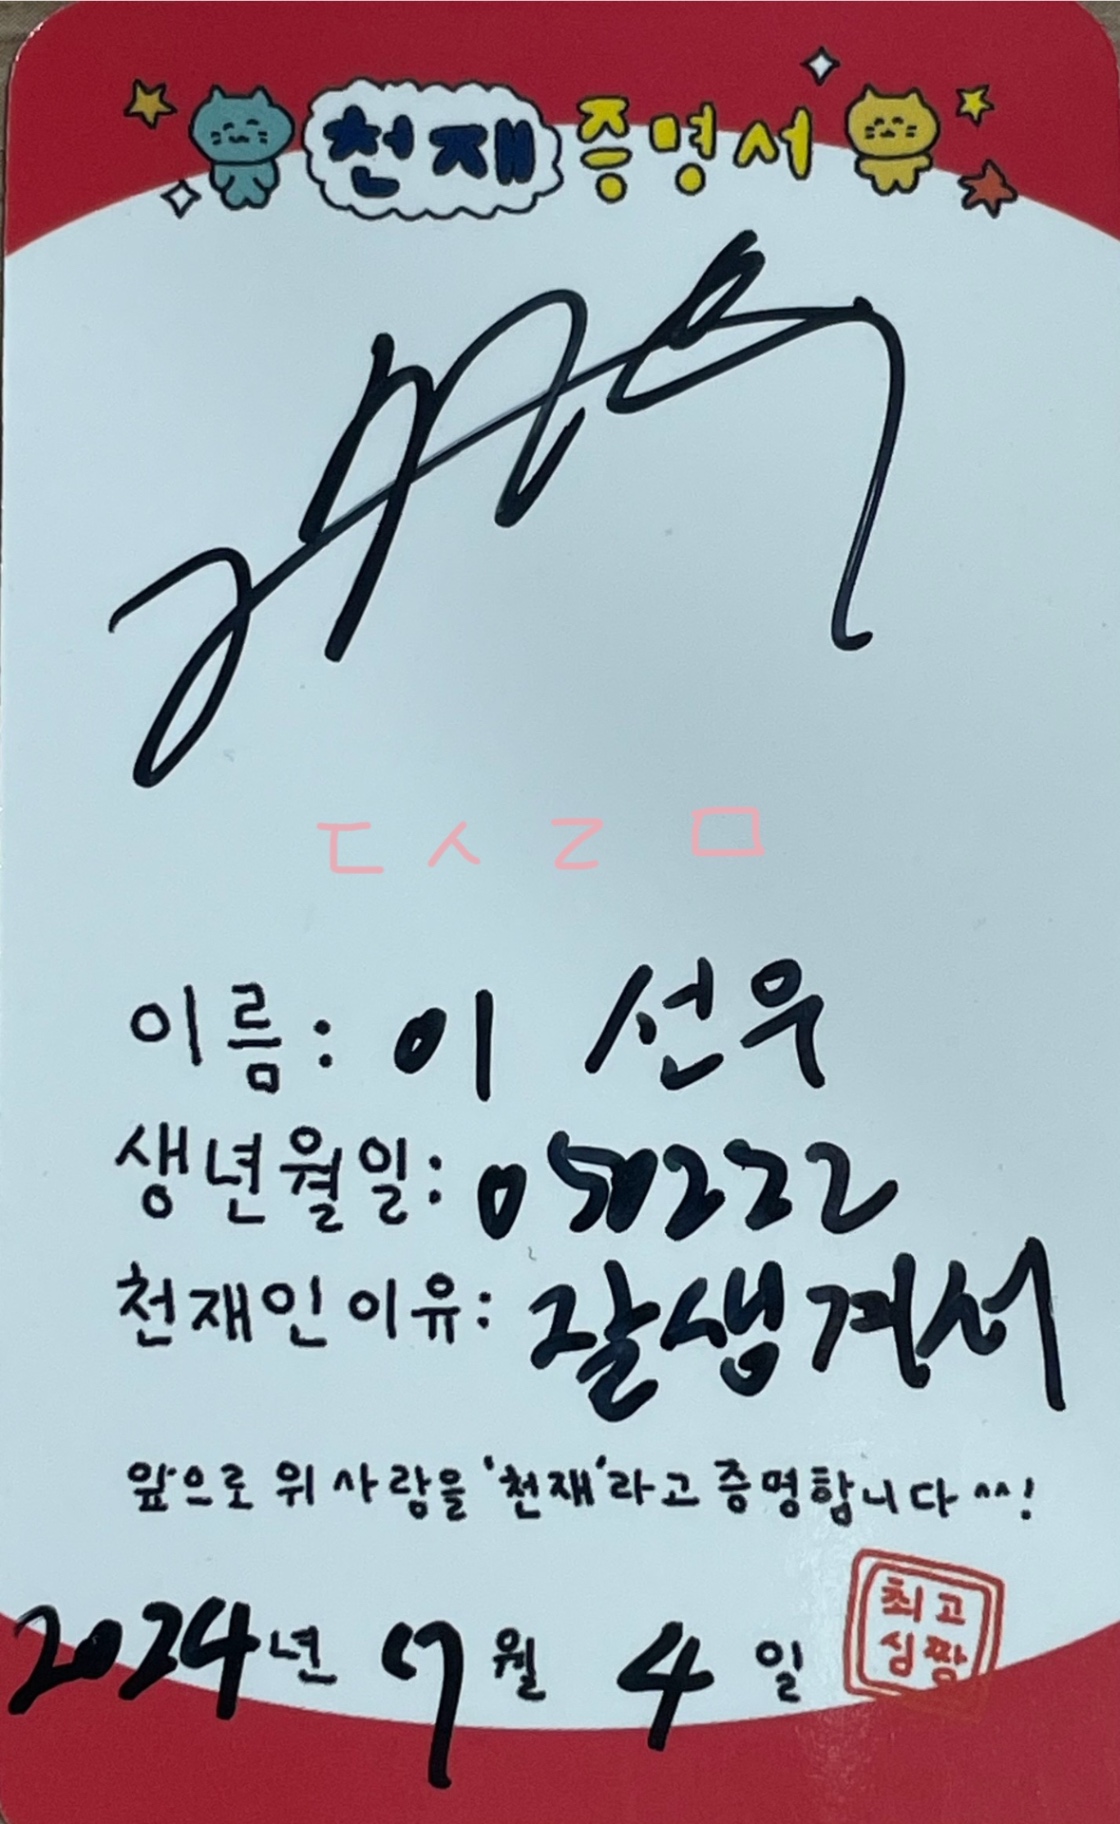 천재 증명서
ㄷㅅㄹㅁ
이름: 이 선우
생년월일: 050222
천재인이유: 잘생겨서
앞으로 위 사람을 '천재'라고 증명합니다 ^^!
2024년 7월 4일
최고
심짱